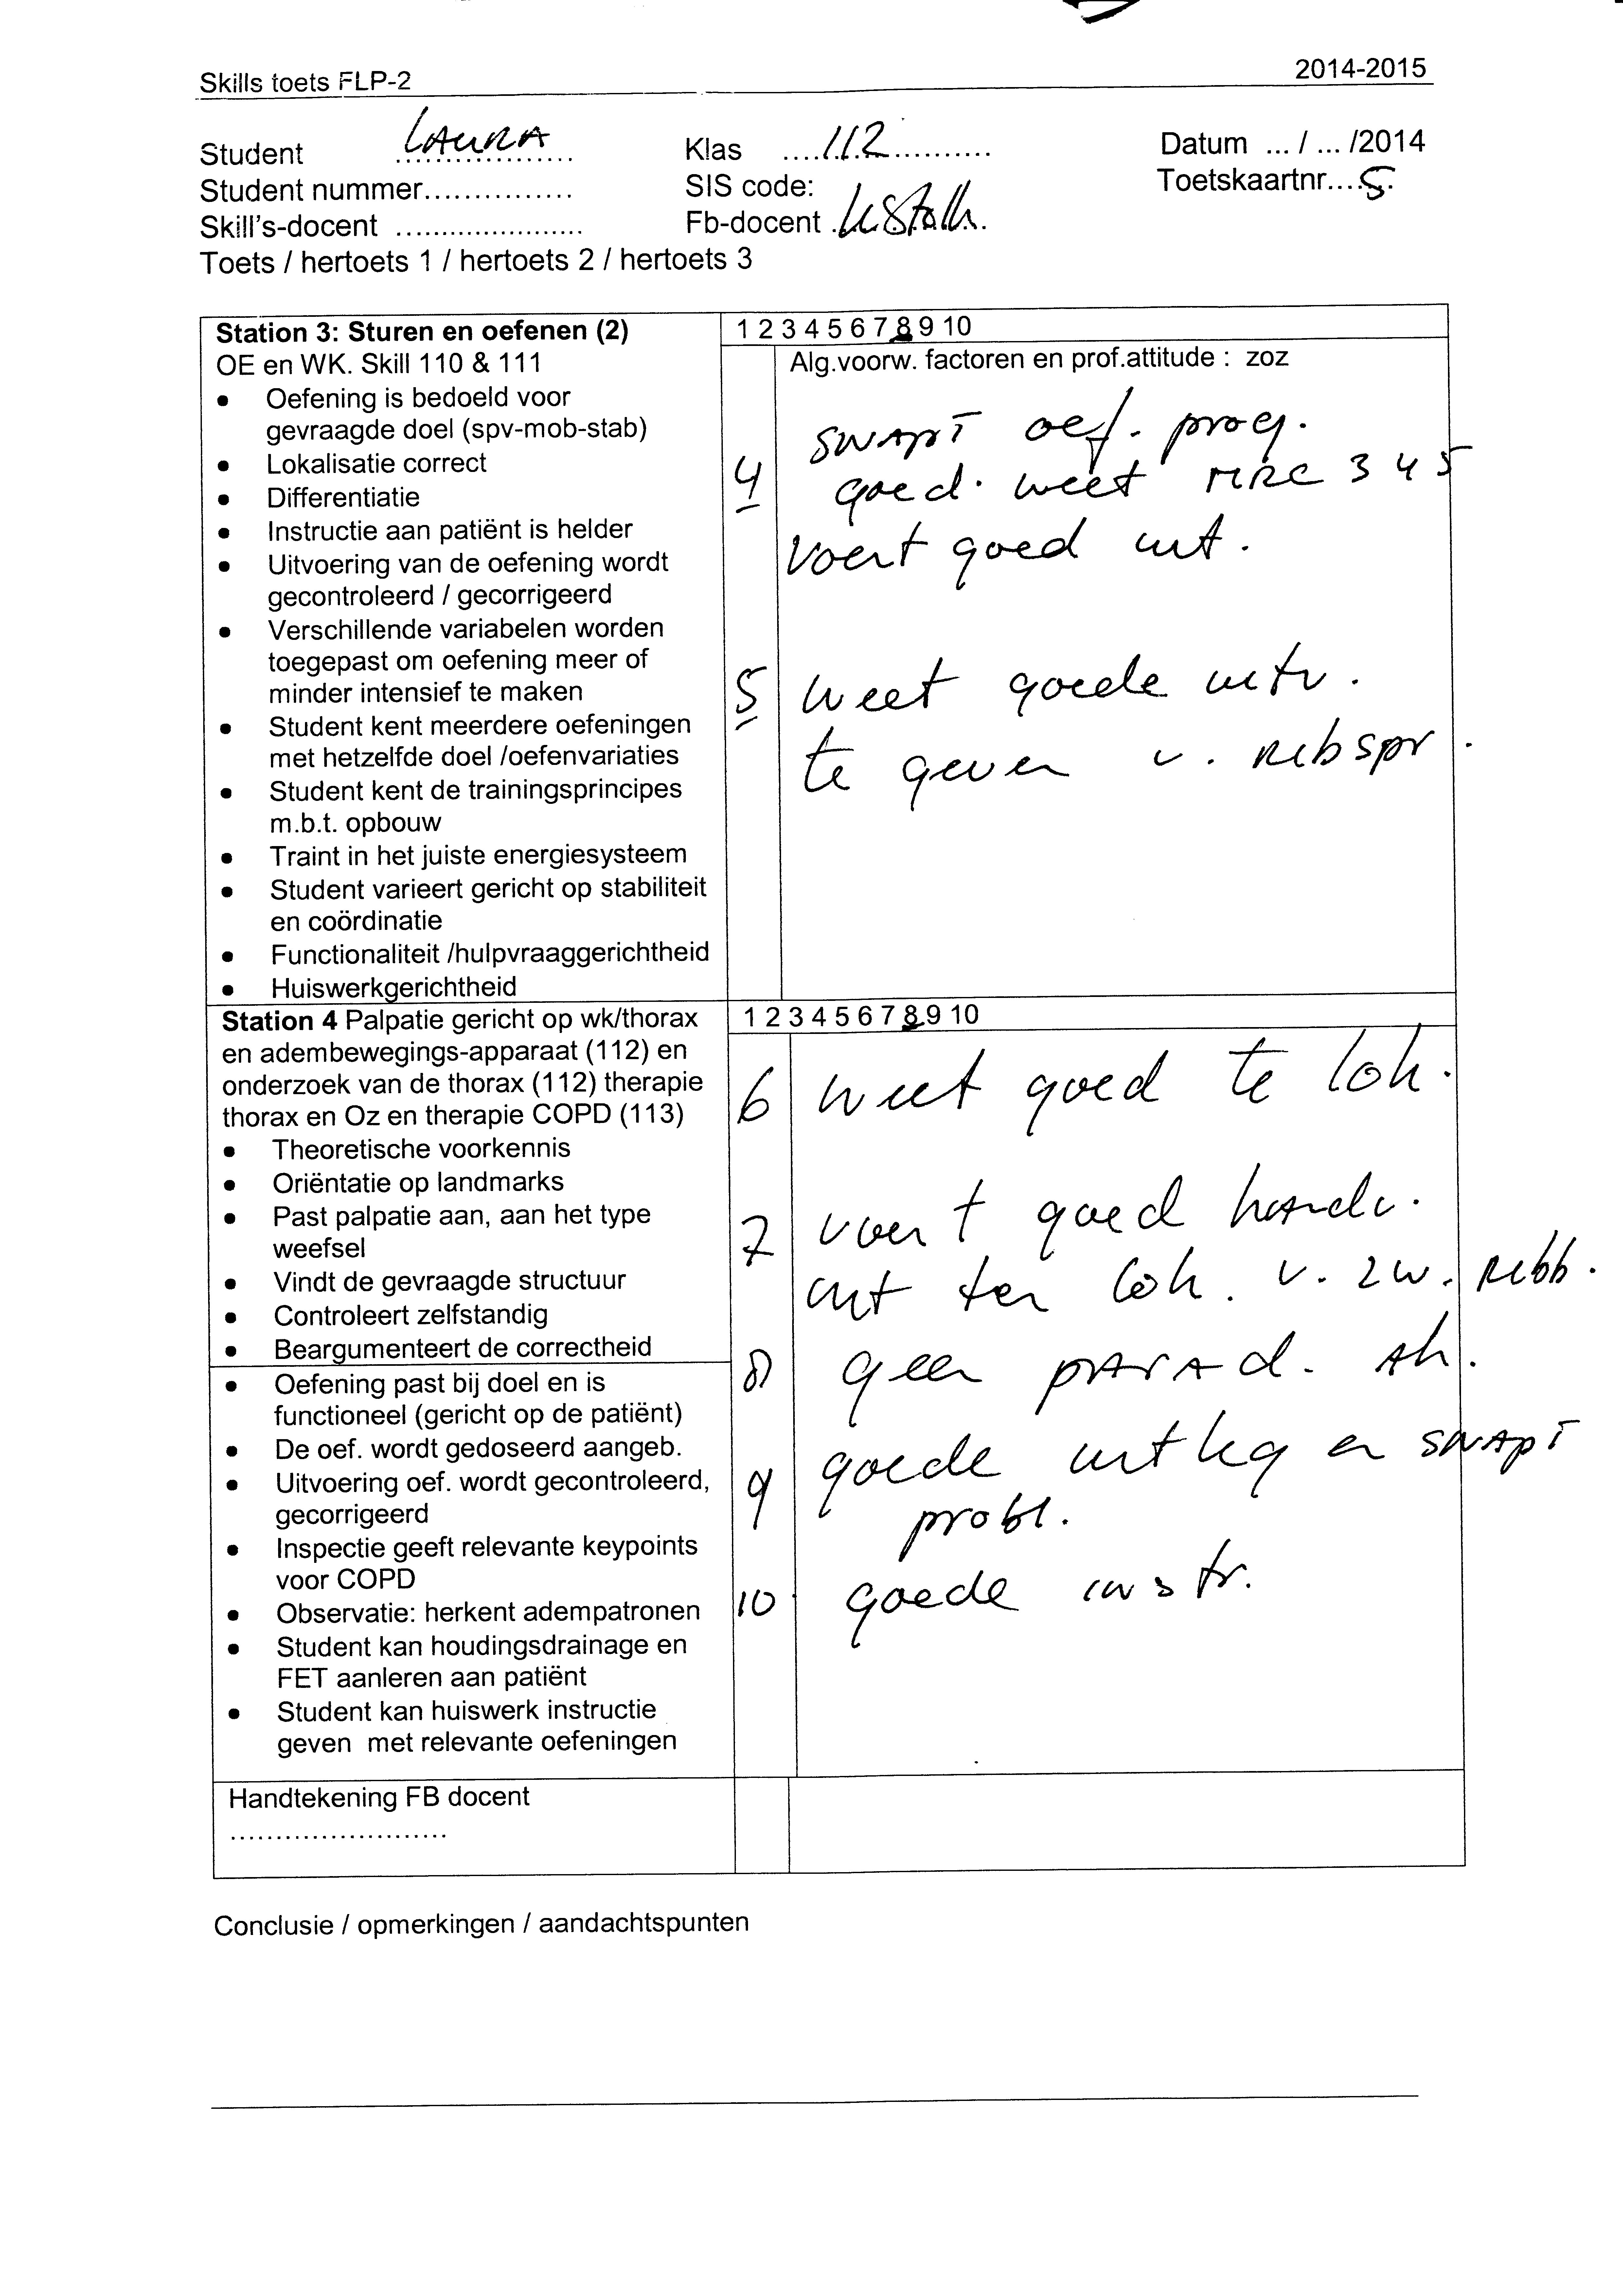 Skills toets FLP-2 2014-2015
Student LAURA Klas 112 Datum ... / ... /2014
Student nummer................ SIS code: Toetskaartnr....5.
Skill's-docent ..................... Fb-docent
Toets / hertoets 1 / hertoets 2 / hertoets 3
Station 3: Sturen en oefenen (2) 1 2 3 4 5 6 7 8 9 10
OE en WK. Skill 110 & 111 Alg.voorw. factoren en prof.attitude : zoz
• Oefening is bedoeld voor
gevraagde doel (spv-mob-stab)
• Lokalisatie correct
• Differentiatie
• Instructie aan patiënt is helder
• Uitvoering van de oefening wordt
gecontroleerd / gecorrigeerd
• Verschillende variabelen worden
toegepast om oefening meer of
minder intensief te maken
• Student kent meerdere oefeningen
met hetzelfde doel /oefenvariaties
• Student kent de trainingsprincipes
m.b.t. opbouw
• Traint in het juiste energiesysteem
• Student varieert gericht op stabiliteit
en coördinatie
• Functionaliteit /hulpvraaggerichtheid
• Huiswerkgerichtheid
4 snapt oef. prog.
goed. weet MRC 3 4 5
voert goed uit.
5 weet goede uitv.
te geven v. ribspr.
Station 4 Palpatie gericht op wk/thorax 1 2 3 4 5 6 7 8 9 10
en adembewegings-apparaat (112) en
onderzoek van de thorax (112) therapie
thorax en Oz en therapie COPD (113)
• Theoretische voorkennis
• Oriëntatie op landmarks
• Past palpatie aan, aan het type
weefsel
• Vindt de gevraagde structuur
• Controleert zelfstandig
• Beargumenteert de correctheid
• Oefening past bij doel en is
functioneel (gericht op de patiënt)
• De oef. wordt gedoseerd aangeb.
• Uitvoering oef. wordt gecontroleerd,
gecorrigeerd
• Inspectie geeft relevante keypoints
voor COPD
• Observatie: herkent adempatronen
• Student kan houdingsdrainage en
FET aanleren aan patiënt
• Student kan huiswerk instructie
geven met relevante oefeningen
6 weet goed te lok.
7 voert goed handv.
uit ter lok. v. zw. ribb.
8) geen parad. ah.
9 goede uitleg en snapt
probl.
10 goede instr.
Handtekening FB docent
........................
Conclusie / opmerkingen / aandachtspunten